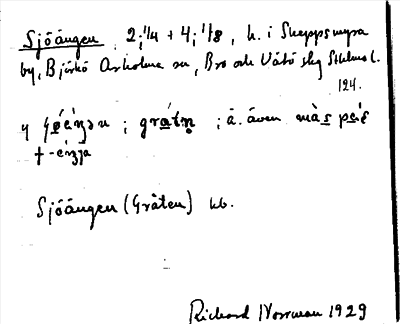 Sjöängen 2;1/4 + 4;1/8, h. i Skeppsmyra
by, Björkö Arholma sn, Bro och Vätö slg Sthlms l.
124.
grátn̥ ; ä. även màs
+ -énja
Sjöängen (Gråten) hb.
Richard Norrman 1929